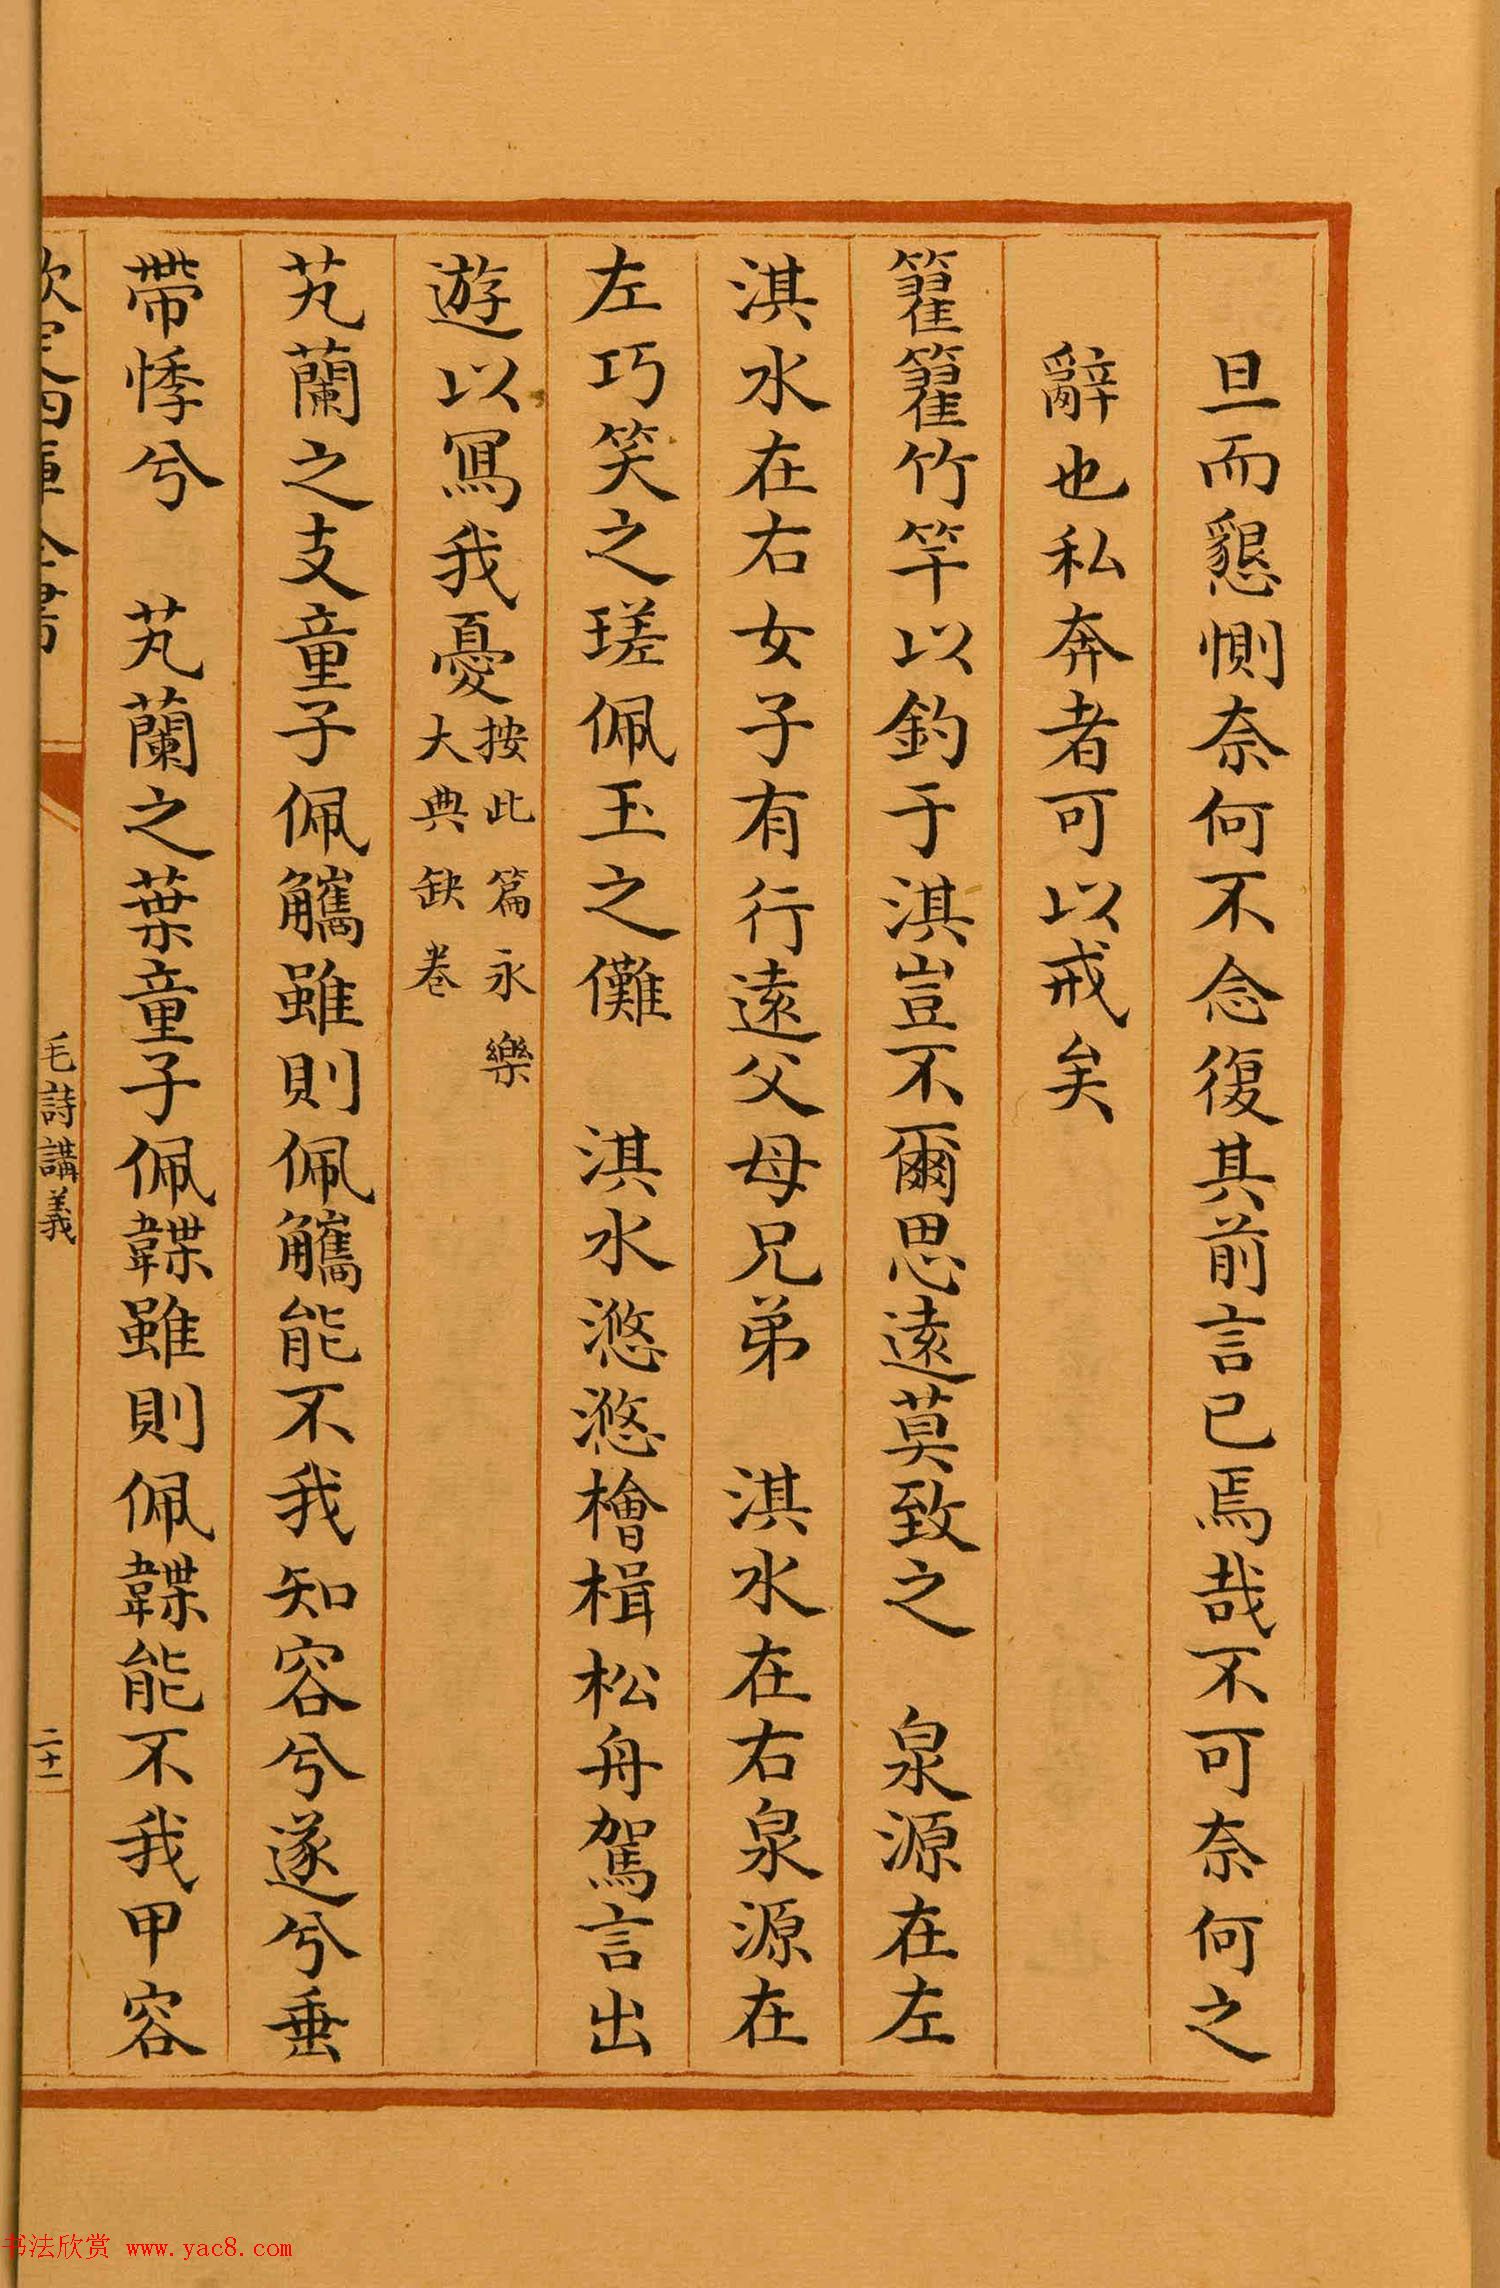 旦而懇惻奈何不念復其前言已焉哉不可奈何之
辭也私奔者可以戒矣
籊籊竹竿以釣于淇豈不爾思遠莫致之　泉源在左
淇水在右女子有行遠父母兄弟　淇水在右泉源在
左巧笑之瑳佩玉之儺　淇水滺滺檜楫松舟駕言出
遊以寫我憂
按此篇永樂
大典缺卷
芄蘭之支童子佩觿雖則佩觿能不我知容兮遂兮垂
帶悸兮　芄蘭之葉童子佩韘雖則佩韘能不我甲容
欽定四庫全書
毛詩講義
二十一
书法欣赏 www.yac8.com